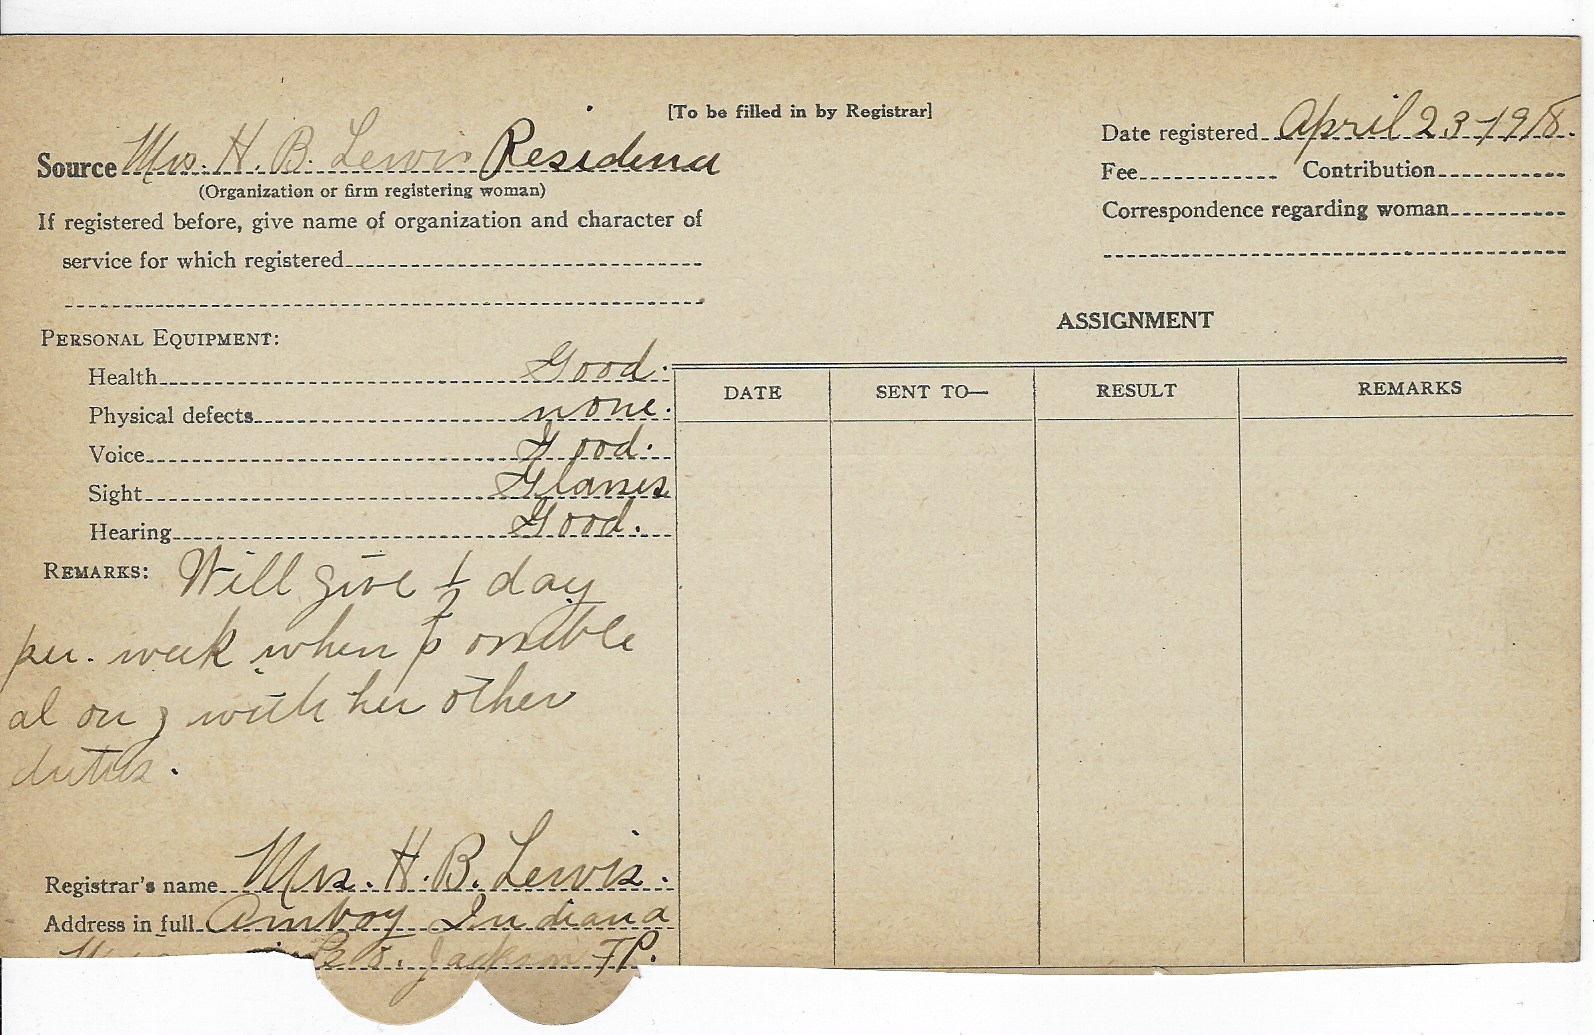 [To be filled in by Registrar]
Date registered April 23-1918.
Source Mrs. H. B. Lewis Residence
(Organization or firm registering woman)
Fee Contribution
If registered before, give name of organization and character of
Correspondence regarding woman
service for which registered
ASSIGNMENT
PERSONAL EQUIPMENT:
Health Good.
DATE SENT TO— RESULT REMARKS
Physical defects none.
Voice Good.
Sight Glasses
Hearing Good.
REMARKS: Will give 1/2 day
per. week when possible
along with her other
duties.
Registrar's name Mrs. H. B. Lewis.
Address in full Amboy Indiana
Jackson TP.